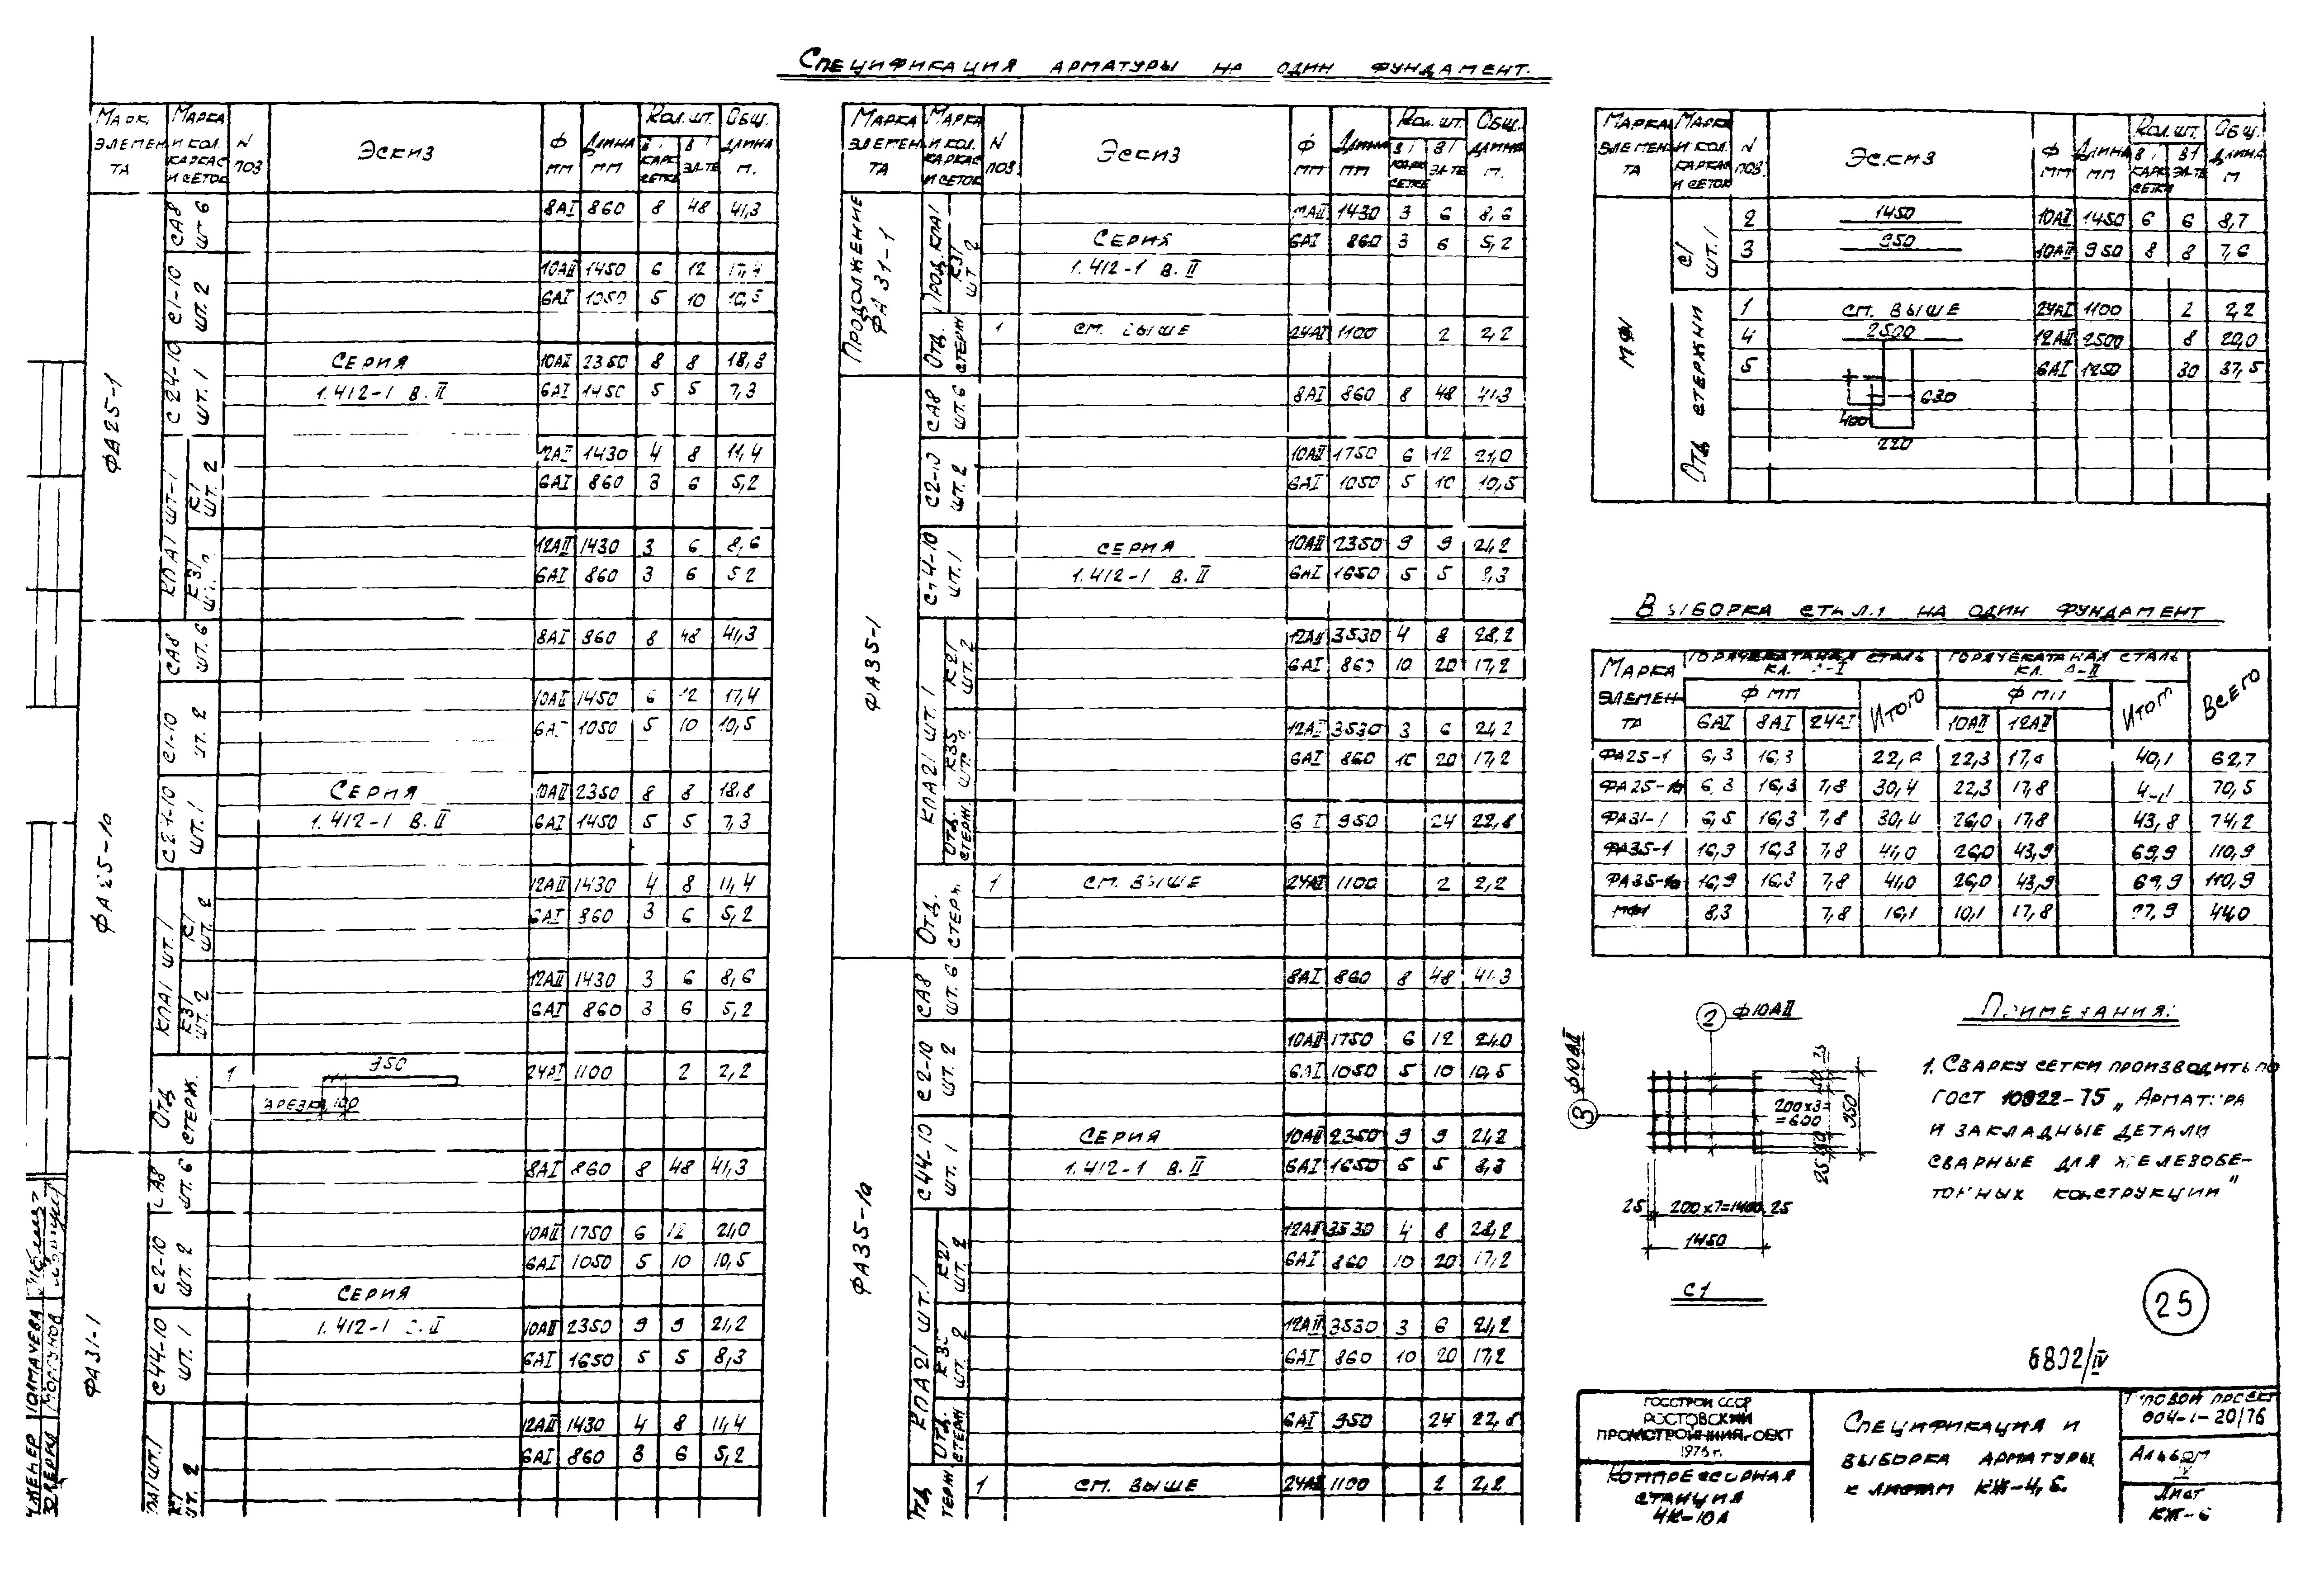 Спецификация арматуры на один фундамент.
Марк. элемента | Марка и кол. каркас и сеток | N поз | Эскиз | Ф мм | Длина мм | Кол. шт. в 1 карк. сетке | в 1 эл-те | Общ. длина м.
ФА25-1
СА8 шт 6 | 8АI | 860 | 8 | 48 | 41,3
С1-10 шт. 2 | 10АII | 1450 | 6 | 12
6АI | 1050 | 5 | 10 | 10,5
С24-10 шт. 1 | Серия | 10АII | 2350 | 8 | 8 | 18,8
1.412-1 в. II | 6АI | 1450 | 5 | 5 | 7,3
КПА1 шт-1 | К1 шт. 2 | 1430 | 4 | 8 | 11,4
6АI | 860 | 3 | 6 | 5,2
К31 | 12АII | 1430 | 3 | 6 | 8,6
6АI | 860 | 3 | 6 | 5 2
ФА25-1а
СА8 шт. 6 | 8АI | 860 | 8 | 48 | 41,3
С1-10 шт. 2 | 10АII | 1450 | 6 | 12 | 17,4
6АI | 1050 | 5 | 10 | 10,5
С24-10 шт. 1 | Серия | 10АII | 2350 | 8 | 8 | 18,8
1.412-1 в. II | 6АI | 1450 | 5 | 5 | 7,3
КПА1 шт. 1 | К1 шт. 2 | 12АII | 1430 | 4 | 8 | 11,4
6АI | 860 | 3 | 6 | 5,2
К31 шт. 2 | 12АII | 1430 | 3 | 6 | 8,6
6АI | 860 | 3 | 6 | 5,2
Отд стерж. | 1 | 950 | 24АI | 1100 | 2 | 2,2
100
ФА31-1
СА8 шт. 6 | 8АI | 860 | 8 | 48 | 41,3
С2-10 шт. 2 | 10АII | 1750 | 6 | 12 | 21,0
6АI | 1050 | 5 | 10 | 10,5
Серия
С44-10 шт. 1 | 1.412-1 | 10АII | 2350 | 9 | 9 | 21,2
6АI | 1650 | 5 | 5 | 8,3
К1 шт. 2 | 12АII | 1430 | 4 | 8 | 11,4
6АI | 860 | 3 | 6 | 5,2
Марка элемента | Марка и кол. каркас и сеток | N поз. | Эскиз | Ф мм | Длина мм | Кол. шт. в 1 карк. сетке | в 1 эл-те | Общ. длина м.
Продолжение ФА31-1
Прод. КПА1 | К31 шт 2 | 1430 | 3 | 6 | 8,6
Серия | 6АI | 860 | 3 | 6 | 5,2
1.412-1 в. II
Отд. стерж | 1 | см. выше | 24АI | 1100 | 2 | 2,2
ФА35-1
СА8 шт. 6 | 8АI | 860 | 8 | 48 | 41.3
С2-10 шт. 2 | 10АII | 1750 | 6 | 12 | 21,0
6АI | 1050 | 5 | 10 | 10,5
шт. 1 | Серия | 10АII | 2350 | 9 | 9 | 21,2
1.412-1 в. II | 6АI | 1650 | 5 | 5 | 8,3
КПА21 шт. 1 | К21 шт. 2 | 12АII | 3530 | 4 | 8 | 28,2
6АI | 860 | 10 | 20 | 17,2
К35 | 3530 | 3 | 6 | 21,2
6АI | 860 | 10 | 20 | 17,2
Отд. стерж. | 950 | 24 | 22,8
Отд. стерж. | 1 | см. выше | 24АI | 1100 | 2 | 2,2
ФА35-1а
СА8 шт. 6 | 8АI | 860 | 8 | 48 | 41.3
С2-10 шт. 2 | 10АII | 1750 | 6 | 12 | 21,0
6АI | 1050 | 5 | 10 | 10,5
С44-10 шт. 1 | Серия | 10АII | 2350 | 9 | 9 | 21,2
1.412-1 в. II | 6АI | 1650 | 5 | 5 | 8,3
КПА21 шт. 1 | К21 шт. 2 | 12АII | 3530 | 4 | 8 | 28,2
6АI | 860 | 10 | 20 | 17,2
шт. 2 | 12АII | 3530 | 3 | 6 | 21,2
6АI | 860 | 10 | 20 | 17,2
Отд. стержн | 6АI | 950 | 24 | 22,8
1 | см. выше | 1100 | 2 | 2,2
Марка элемента | Марка и кол. каркас и сеток | N поз. | Эскиз | Ф мм | Длина мм | Кол. шт. в 1 карк. сетки | в 1 эл-те | Общ. длина м
МФ1
С1 шт. 1 | 2 | 1450 | 10АII | 1450 | 6 | 6 | 8,7
3 | 950 | 10АII | 950 | 8 | 8 | 7,6
Отд стержни | 1 | см. выше | 24АI | 1100 | 2 | 2,2
4 | 2500 | 12АII | 2500 | 8 | 20,0
5 | 6АI | 1250 | 30 | 37,5
630
400
220
Выборка стали на один фундамент
Марка элемента | Горячекатаная сталь кл. А-I | Горячекатаная сталь кл. А-II | Всего
Ф мм | Итого | Ф мм | Итого
6АI | 8АI | 24АI | 10АII | 12АII
ФА25-1 | 6,3 | 16,3 | 22,6 | 22,3 | 17,8 | 40,1 | 62,7
ФА25-1а | 6,3 | 16,3 | 7,8 | 30,4 | 22,3 | 17,8 | 40,1 | 70,5
ФА31-1 | 6,5 | 16,3 | 7,8 | 30,4 | 26,0 | 17,8 | 43,8 | 74,2
ФА35-1 | 16,9 | 16,3 | 7,8 | 41,0 | 26,0 | 43,9 | 69,9 | 110,9
ФА35-1а | 16,9 | 16,3 | 7,8 | 41,0 | 26,0 | 43,9 | 69,9 | 110,9
МФ1 | 8,3 | 7,8 | 16,1 | 10,1 | 17,8 | 27,9 | 44,0
2 ф10АII
3 ф10АII
200х3=
=600
950
25 50
25 50
25 200х7=1400 25
1450
С1
Примечания:
1. Сварку сетки производить по
ГОСТ 10922-75 „Арматура
и закладные детали
сварные для железобе-
тонных конструкции"
25
6802/IV
Госстрой СССР
Ростовский
Промстройниипроект
Компрессорная
станция
4К-10А
Спецификация и
выборка арматуры
к листам КЖ-4,5.
Типовой проект
904-1-20/76
Альбом
IV
Лист
КЖ-6